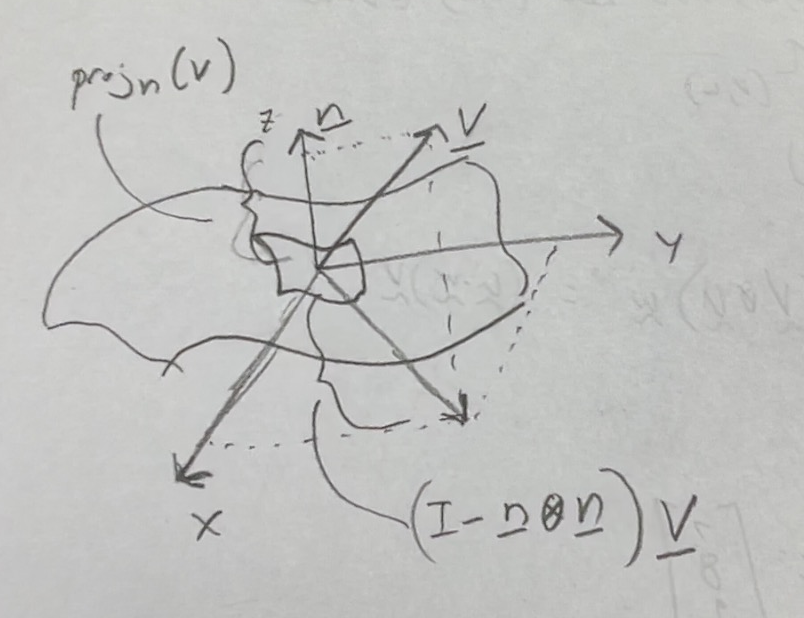 projn(v)
z n V
y
x
(I - n ⊗ n) V